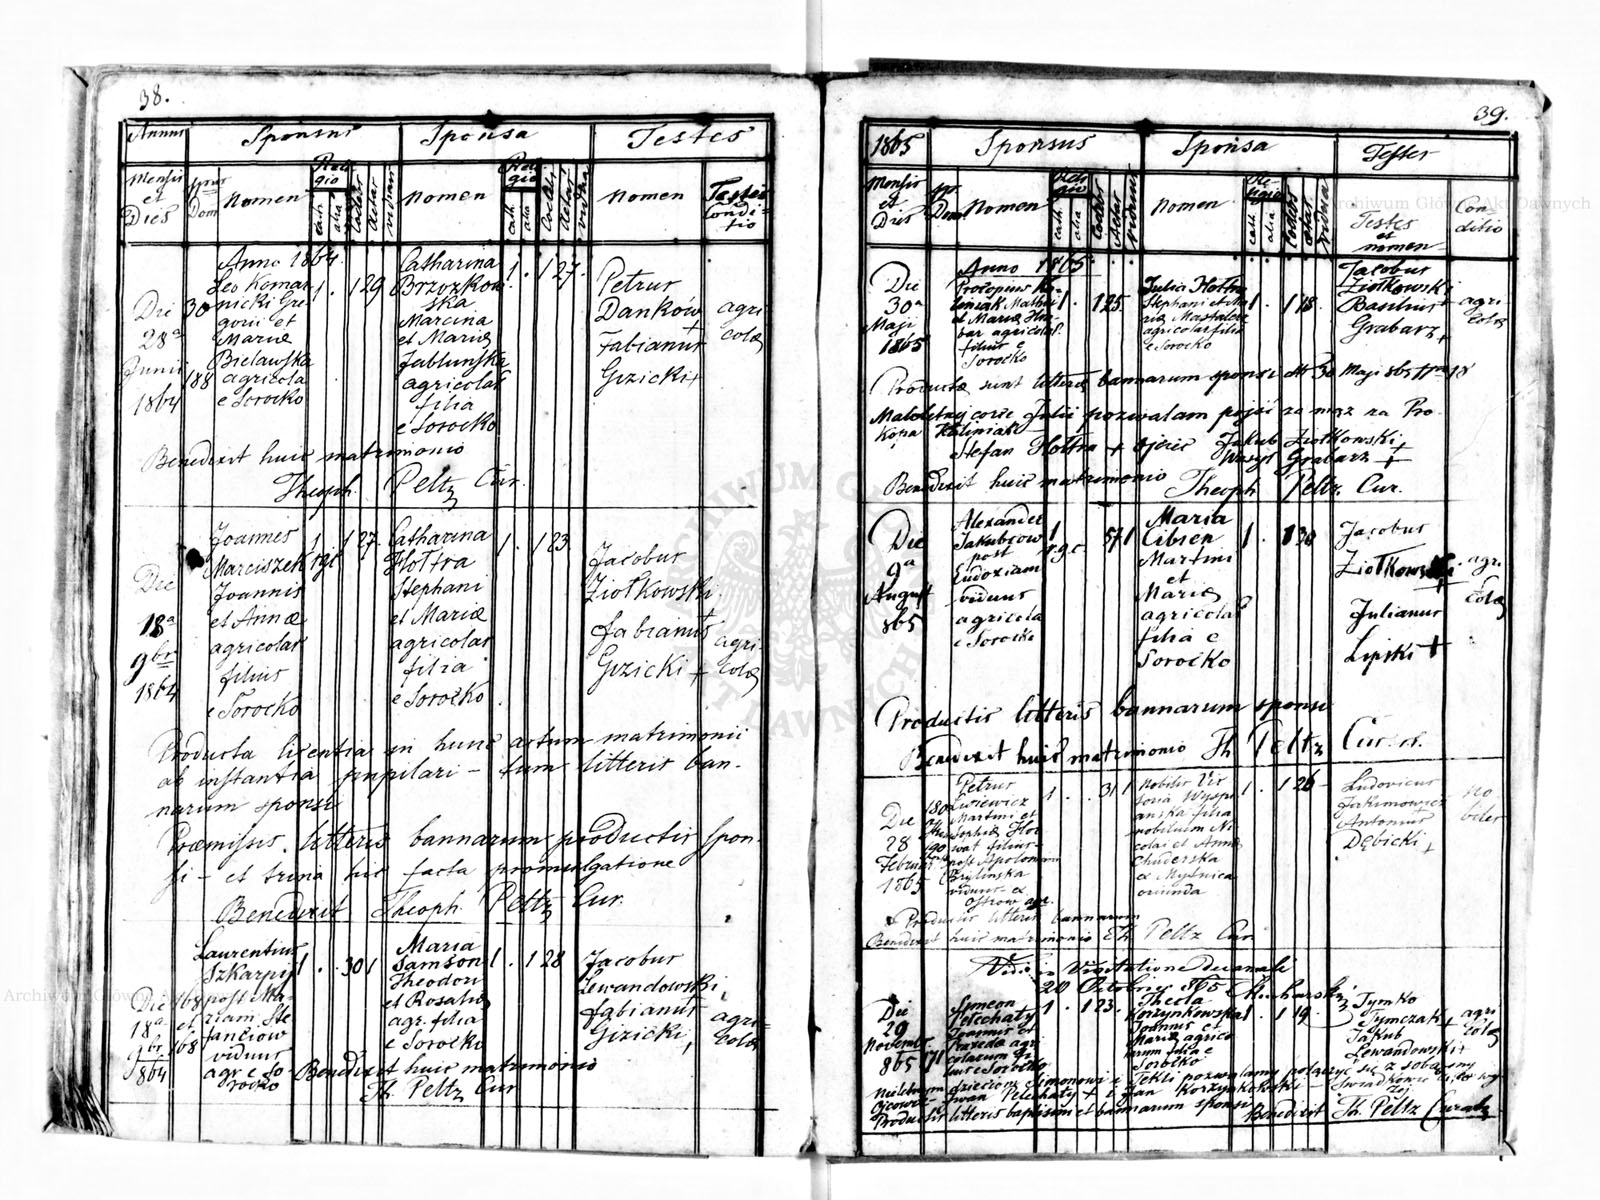 38.
Annus
Sponsus
Sponsa
Testes
Mensis
et
Dies
Dom
Nomen
Religio
cath.
alia
Nomen
Religio
cath.
alia
Nomen
Testes
Conditio
Anno 1864.
Die
28ª
Junii
1864
30
188
Leo Komar-
nicki Gre-
gorii et
Mariæ
Bielawska
agricola
e Sorocko
1 . 1 29
Catharina
Brzozkow
ska
Marcina
et Mariæ
Jablunska
agricolar
filia
e Sorocko
1 . 1 27.
Petrus
Danków
+
Fabianus
Gizicki +
agri
colæ
Benedixit huic matrimonio
Theoph. Peltz Cur.
Die
18ª
9bris
1864
Joannes
Marciszek
Joannis
et Annæ
agricolar
filius
e Sorocko
1 rgc 1 27.
Catharina
Hołtra
Stephani
et Mariæ
agricolar
filia
e Sorocko
1 . 1 23
Jacobus
Ziołkowski.
+
Fabianus
Gizicki +
agri-
colæ
Producta licentia in hunc actum matrimonii
ab instantia pupilari - tum litteris ban-
narum sponsi
Præmissis litteris bannarum productis spon-
si - et trina hic facta promulgatione
Benedixit Theoph. Peltz Cur.
Die
18ª
9bris
1864
168
et
168
Laurentius
Szkarpij
post Ma-
riam Ste
fanciow
viduus
agr e So-
rocko
1 . . 30 1
Maria
Samson
Theodori
et Rosaliæ
agr. filia
e Sorocko
1 . 1 28
Jacobus
Lewandowski
+
Fabianus
Gizicki +
agri-
colæ
Benedixit huic matrimonio
Th. Peltz Cur
39.
1865
Sponsus
Sponsa
Testes
Mensis
et
Dies
Dom
Nomen
Religio
cath.
alia
Nomen
Religio
cath.
alia
vidua
Testes
et
nomen
Con-
ditio
Anno 1865
Die
30ª
Maji
1865
Procopius Ka-
liniak Mathei
et Mariæ Hra-
bar agricolar.
filius e
Sorocko
1 . 1 25.
Julia Hołtra
Stephani et Ma-
riæ Mastalerz
agricolar filia
e Sorocko
1 . 1 18.
Jacobus
Ziołkowski
+
Basilius
Grabarz +
agri
colæ
Productæ sunt litteræ bannarum sponsi dto 30 Maji 865 Nro 18
Małoletny corce Julii pozwalam pojść za mąż za Pro-
kopa Kaliniak -
Stefan Hołtra + Ojciec Jakub Ziołkowski +
Wasyl Grabarz +
Benedixit huic matrimonio Theoph Peltz. Cur.
Die
9ª
August
865
Alexander
Jakubcow
post
Eudoxiam
viduus
agricola
e Sorocko
1 r.g.c. . 57 1
Maria
Cibien
Martini
et
Mariæ
agricolar
filia e
Sorocko
1 . 1 30
Jacobus
Ziołkowski
+
Julianus
Lipski +
agri.
colæ
Productis litteris bannarum sponsi
Benedixit huic matrimonio Th Peltz Cur.
Die
28
Februarii
1865
180
190
Petrus
Martini et
Sophiæ
filius
post Apoloniam
viduus - ex
Ostrow agr.
1 . . 31 1
Nobilis Vic
toria Wyspi
anska filia
nobilium Ni
colai et Annæ
Chuderska
ex Myśnica
oriunda
1 . 1 26
Ludovicus
Jakimowicz
Antonius
Dębicki +
no
biles
Productis litteris bannarum
Benedixit huic matrimonio Th Peltz Cur
Vidi in Visitatione decanali
20 Octobris 865
Die
29
Novembr.
865
171
Symeon
Pelechaty
Joannis et
agri
colarum fi-
lius e Sorocko
1 . 1 23.
Thecla
Korzynkowska
Joannis et
Mariæ agrico
larum filia e
Sorocko
1 . 1 19.
Tymko
Tymczak +
Jakub
Lewandowski +
agri
colæ
Nieletnym dzieciom Simonowi i Tekli pozwalamy połączyć się z sobą
Ojcowie - Iwan Pelechaty + i Jan Korzynkowski
Productis litteris baptismi et bannarum sponsi Benedixit Th. Peltz Curatus
Archiwum Główne Akt Dawnych
Archiwum Główne Akt Dawnych
ARCHIWUM GŁÓWNE AKT DAWNYCH